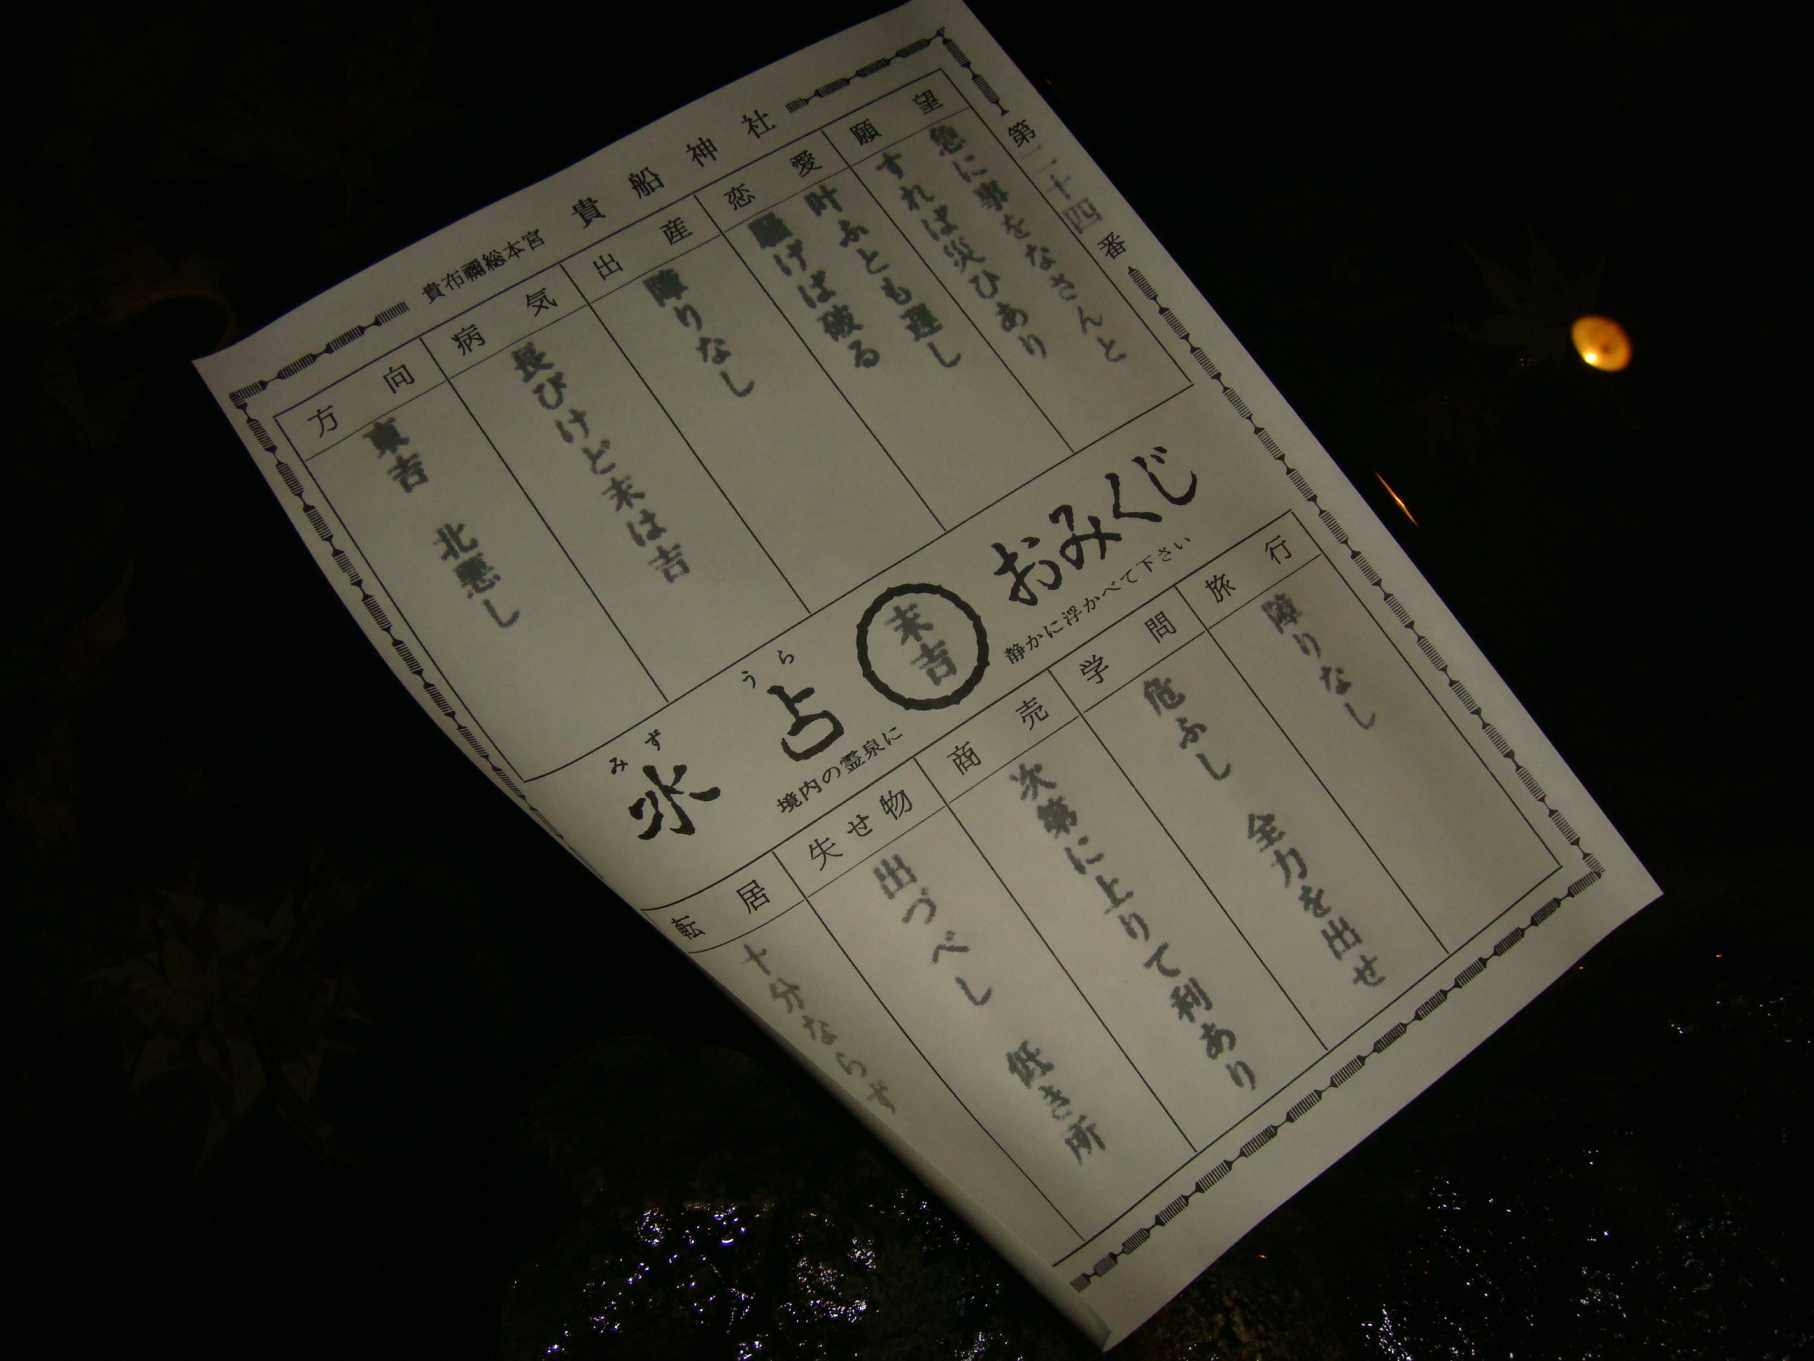 第二十四番
貴布禰総本宮 貴船神社
願望
急に事をなさんと
すれば災ひあり
恋愛
叶ふとも遅し
騒げば破る
出産
障りなし
病気
長びけど末は吉
方向
東吉 北悪し
おみくじ
末吉
水占
みずうら
境内の霊泉に
静かに浮かべて下さい
旅行
障りなし
学問
危ふし 全力を出せ
商売
次第に上りて利あり
失せ物
出づべし 低き所
転居
十分ならず